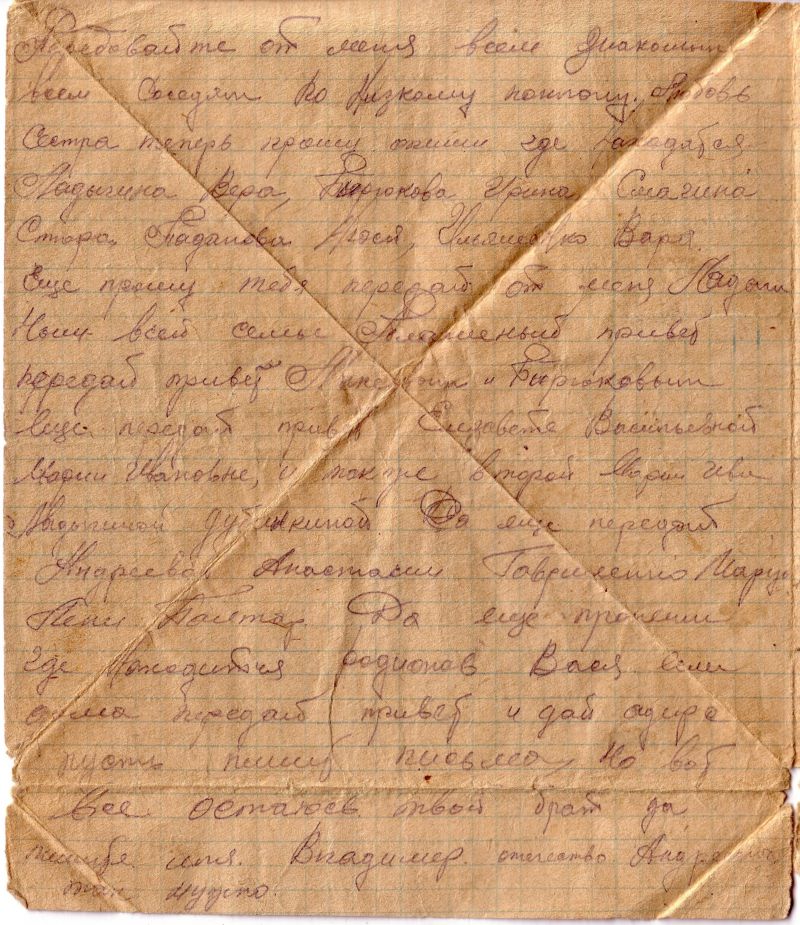 от меня всем знакомым
всем соседям по низкому поклону. Любовь
Сестра теперь прошу опиши где находятся
Ладыгина Вера, Бирюкова Ирина Смагина
Вара.
Еще прошу тебя передай от меня Лады
Ным всей семье Пламеный привет
передай привет и Бирюковым
еще передай привет Елизавете Васильевной
Марии Ивановне, и также второй Марии Ива
Ладыгиной Да еще передай
Андреевой Анастасии Гавриленко Марузе
Да еще пропеши
где находится Родионов Вася если
дома передай привет и дай адира
пусть пишит письма, Но вот
Все остаюсь твой брат да
имя. Владимер отчество
так нужно.